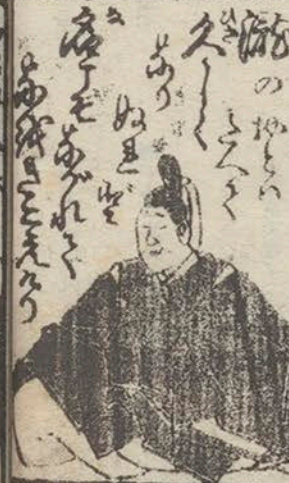 瀧の おとハ
たえて
久しく
なり
ぬれど
名こそながれて
なほきこえけれ